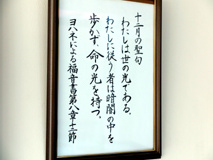 十二月の聖句
わたしは世の光である。
わたしに従う者は暗闇の中を
歩かず、命の光を持つ。
ヨハネによる福音書第八章十二節